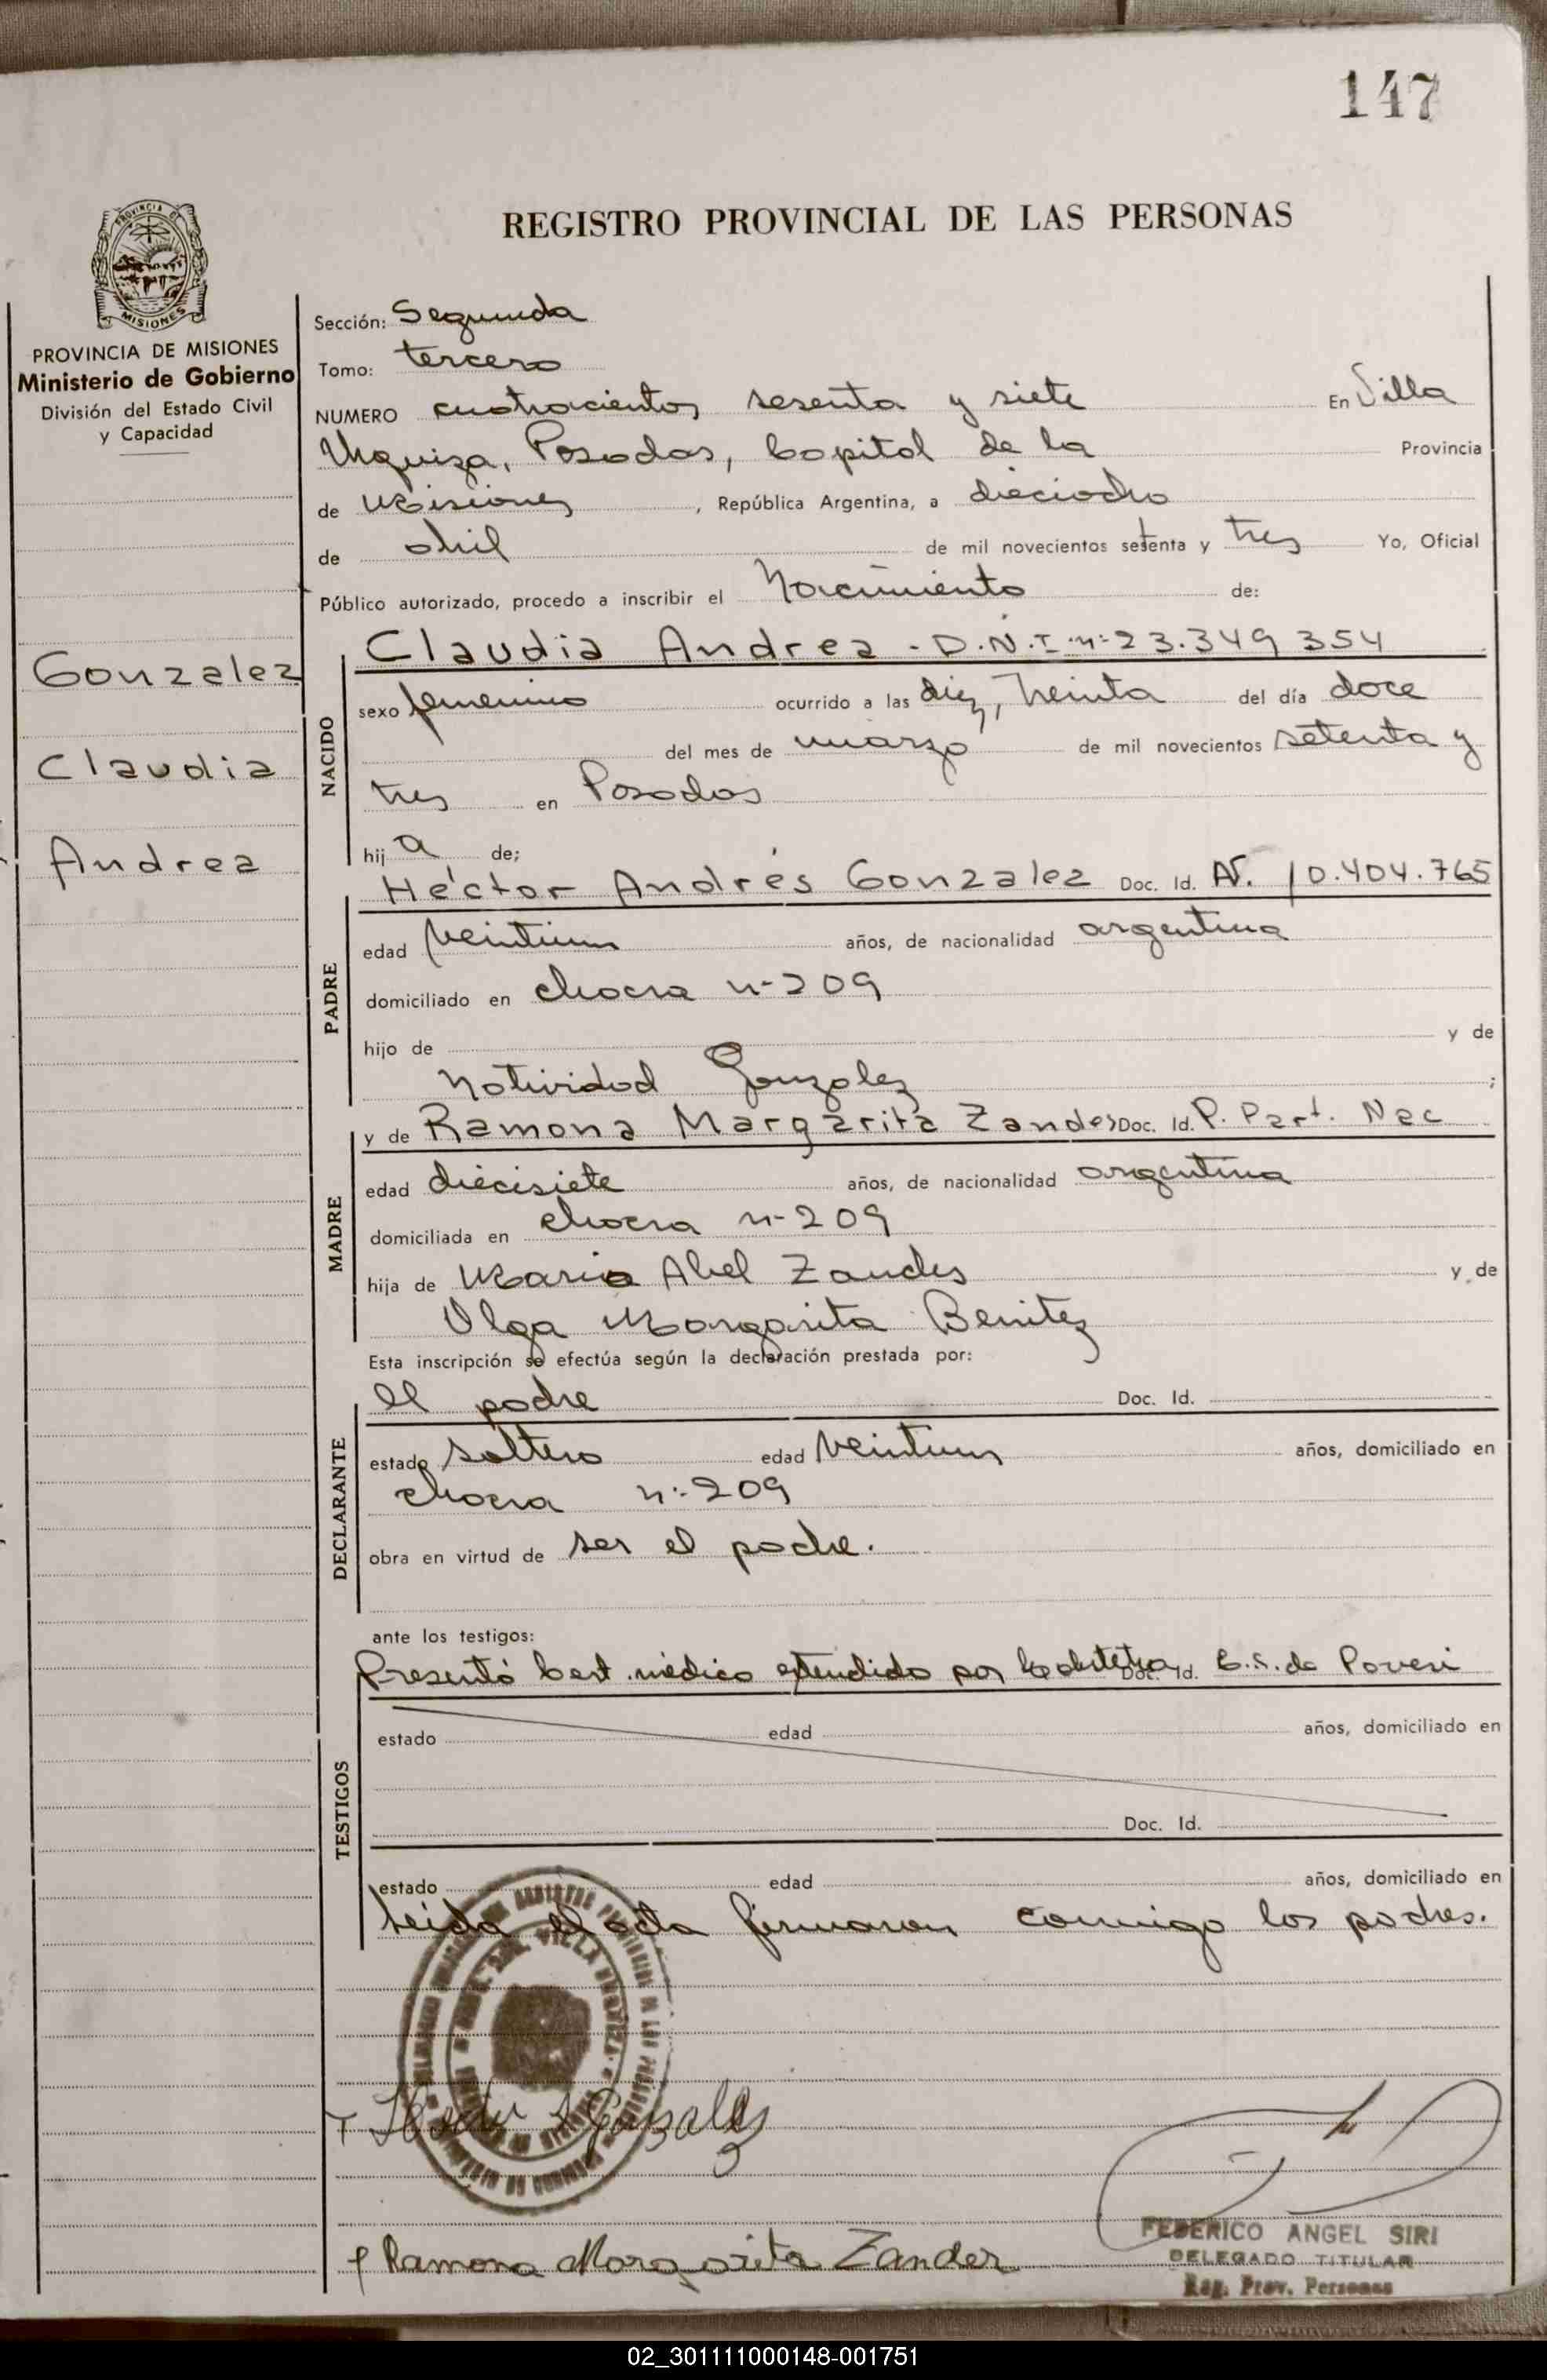 147
REGISTRO PROVINCIAL DE LAS PERSONAS
PROVINCIA DE MISIONES
PROVINCIA DE MISIONES
Ministerio de Gobierno
División del Estado Civil
y Capacidad
Gonzalez
Claudia
Andrea
Sección: Segunda
Tomo: tercero
NUMERO cuatrocientos sesenta y siete En Villa
Urquiza, Posadas, Capital de la Provincia
de Misiones, República Argentina, a dieciocho
de abril de mil novecientos setenta y tres Yo, Oficial
Público autorizado, procedo a inscribir el Nacimiento de:
NACIDO
Claudia Andrea - D.N.I nº 23.349 354
sexo femenino ocurrido a las diez, treinta del día doce
del mes de marzo de mil novecientos setenta y
tres en Posadas
hij a de;
PADRE
Héctor Andrés Gonzalez Doc. Id. Nº. 10.404.765
edad veintiun años, de nacionalidad argentina
domiciliado en chacra n- 209
hijo de y de
Natividad Gonzalez ;
MADRE
y de Ramona Margarita Zander Doc. Id. P. Part. Nac
edad diecisiete años, de nacionalidad argentina
domiciliada en chacra n- 209
hija de Mario Abel Zander y de
Olga Margarita Benitez
Esta inscripción se efectúa según la declaración prestada por:
DECLARANTE
el padre Doc. Id.
estado soltero edad veintiun años, domiciliado en
chacra n:- 209
obra en virtud de ser el padre.
ante los testigos:
TESTIGOS
Presentó Cert. médico extendido por la obstetra Doc. Id. E.S. de Poveri
estado edad años, domiciliado en
Doc. Id.
estado edad años, domiciliado en
Leida el acta firmaron conmigo los padres.
Gonzalez
Ramona Margarita Zander
FEDERICO ANGEL SIRI
DELEGADO TITULAR
Reg. Prov. Personas
02_301111000148-001751